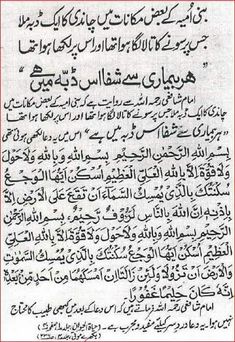 بنی اُمیہ کے بعض مکانات میں چاندی کا ایک ڈبہ ملا
جس پر سونے کا تالا لگا ہوا تھا اور اس پر لکھا ہوا تھا
”ہر بیماری سے شفا اس ڈبہ میں ہے“
امام شافعی رحمۃ اللہ سے روایت ہے کہ بنی امیہ کے بعض مکانات میں
چاندی کا ایک ڈبہ ملا جس پر سونے کا تالا لگا ہوا تھا اور اس پر لکھا ہوا تھا
”ہر بیماری سے شفا اس ڈبہ میں ہے“ اس میں یہ دعا لکھی ہوئی تھی
بِسْمِ اللّٰهِ الرَّحْمٰنِ الرَّحِيْمِ بِسْمِ اللّٰهِ وَبِاللّٰهِ وَلَا حَوْلَ
وَلَا قُوَّةَ اِلَّا بِاللّٰهِ الْعَلِيِّ الْعَظِيْمِ اُسْكُنْ اَيُّهَا الْوَجَعُ
سَكَّنْتُكَ بِالَّذِيْ يُمْسِكُ السَّمَآءَ اَنْ تَقَعَ عَلَى الْاَرْضِ اِلَّا
بِاِذْنِهٖ اِنَّ اللّٰهَ بِالنَّاسِ لَرَءُوْفٌ رَّحِيْمٌ بِسْمِ اللّٰهِ الرَّحْمٰنِ
الرَّحِيْمِ بِسْمِ اللّٰهِ وَبِاللّٰهِ وَلَا حَوْلَ وَلَا قُوَّةَ اِلَّا بِاللّٰهِ الْعَلِيِّ
الْعَظِيْمِ اُسْكُنْ اَيُّهَا الْوَجَعُ سَكَّنْتُكَ بِالَّذِيْ يُمْسِكُ السَّمٰوٰتِ
وَالْاَرْضَ اَنْ تَزُوْلَا وَلَئِنْ زَالَتَا اِنْ اَمْسَكَهُمَا مِنْ اَحَدٍ مِّنْ بَعْدِهٖ
اِنَّهٗ كَانَ حَلِيْمًا غَفُوْرًا
امام شافعی رحمۃ اللہ فرماتے ہیں کہ اس دعا کے بعد میں کبھی طبیب کا محتاج
نہیں ہوا یہ دعا درد سر کیلئے مفید و مجرب ہے۔